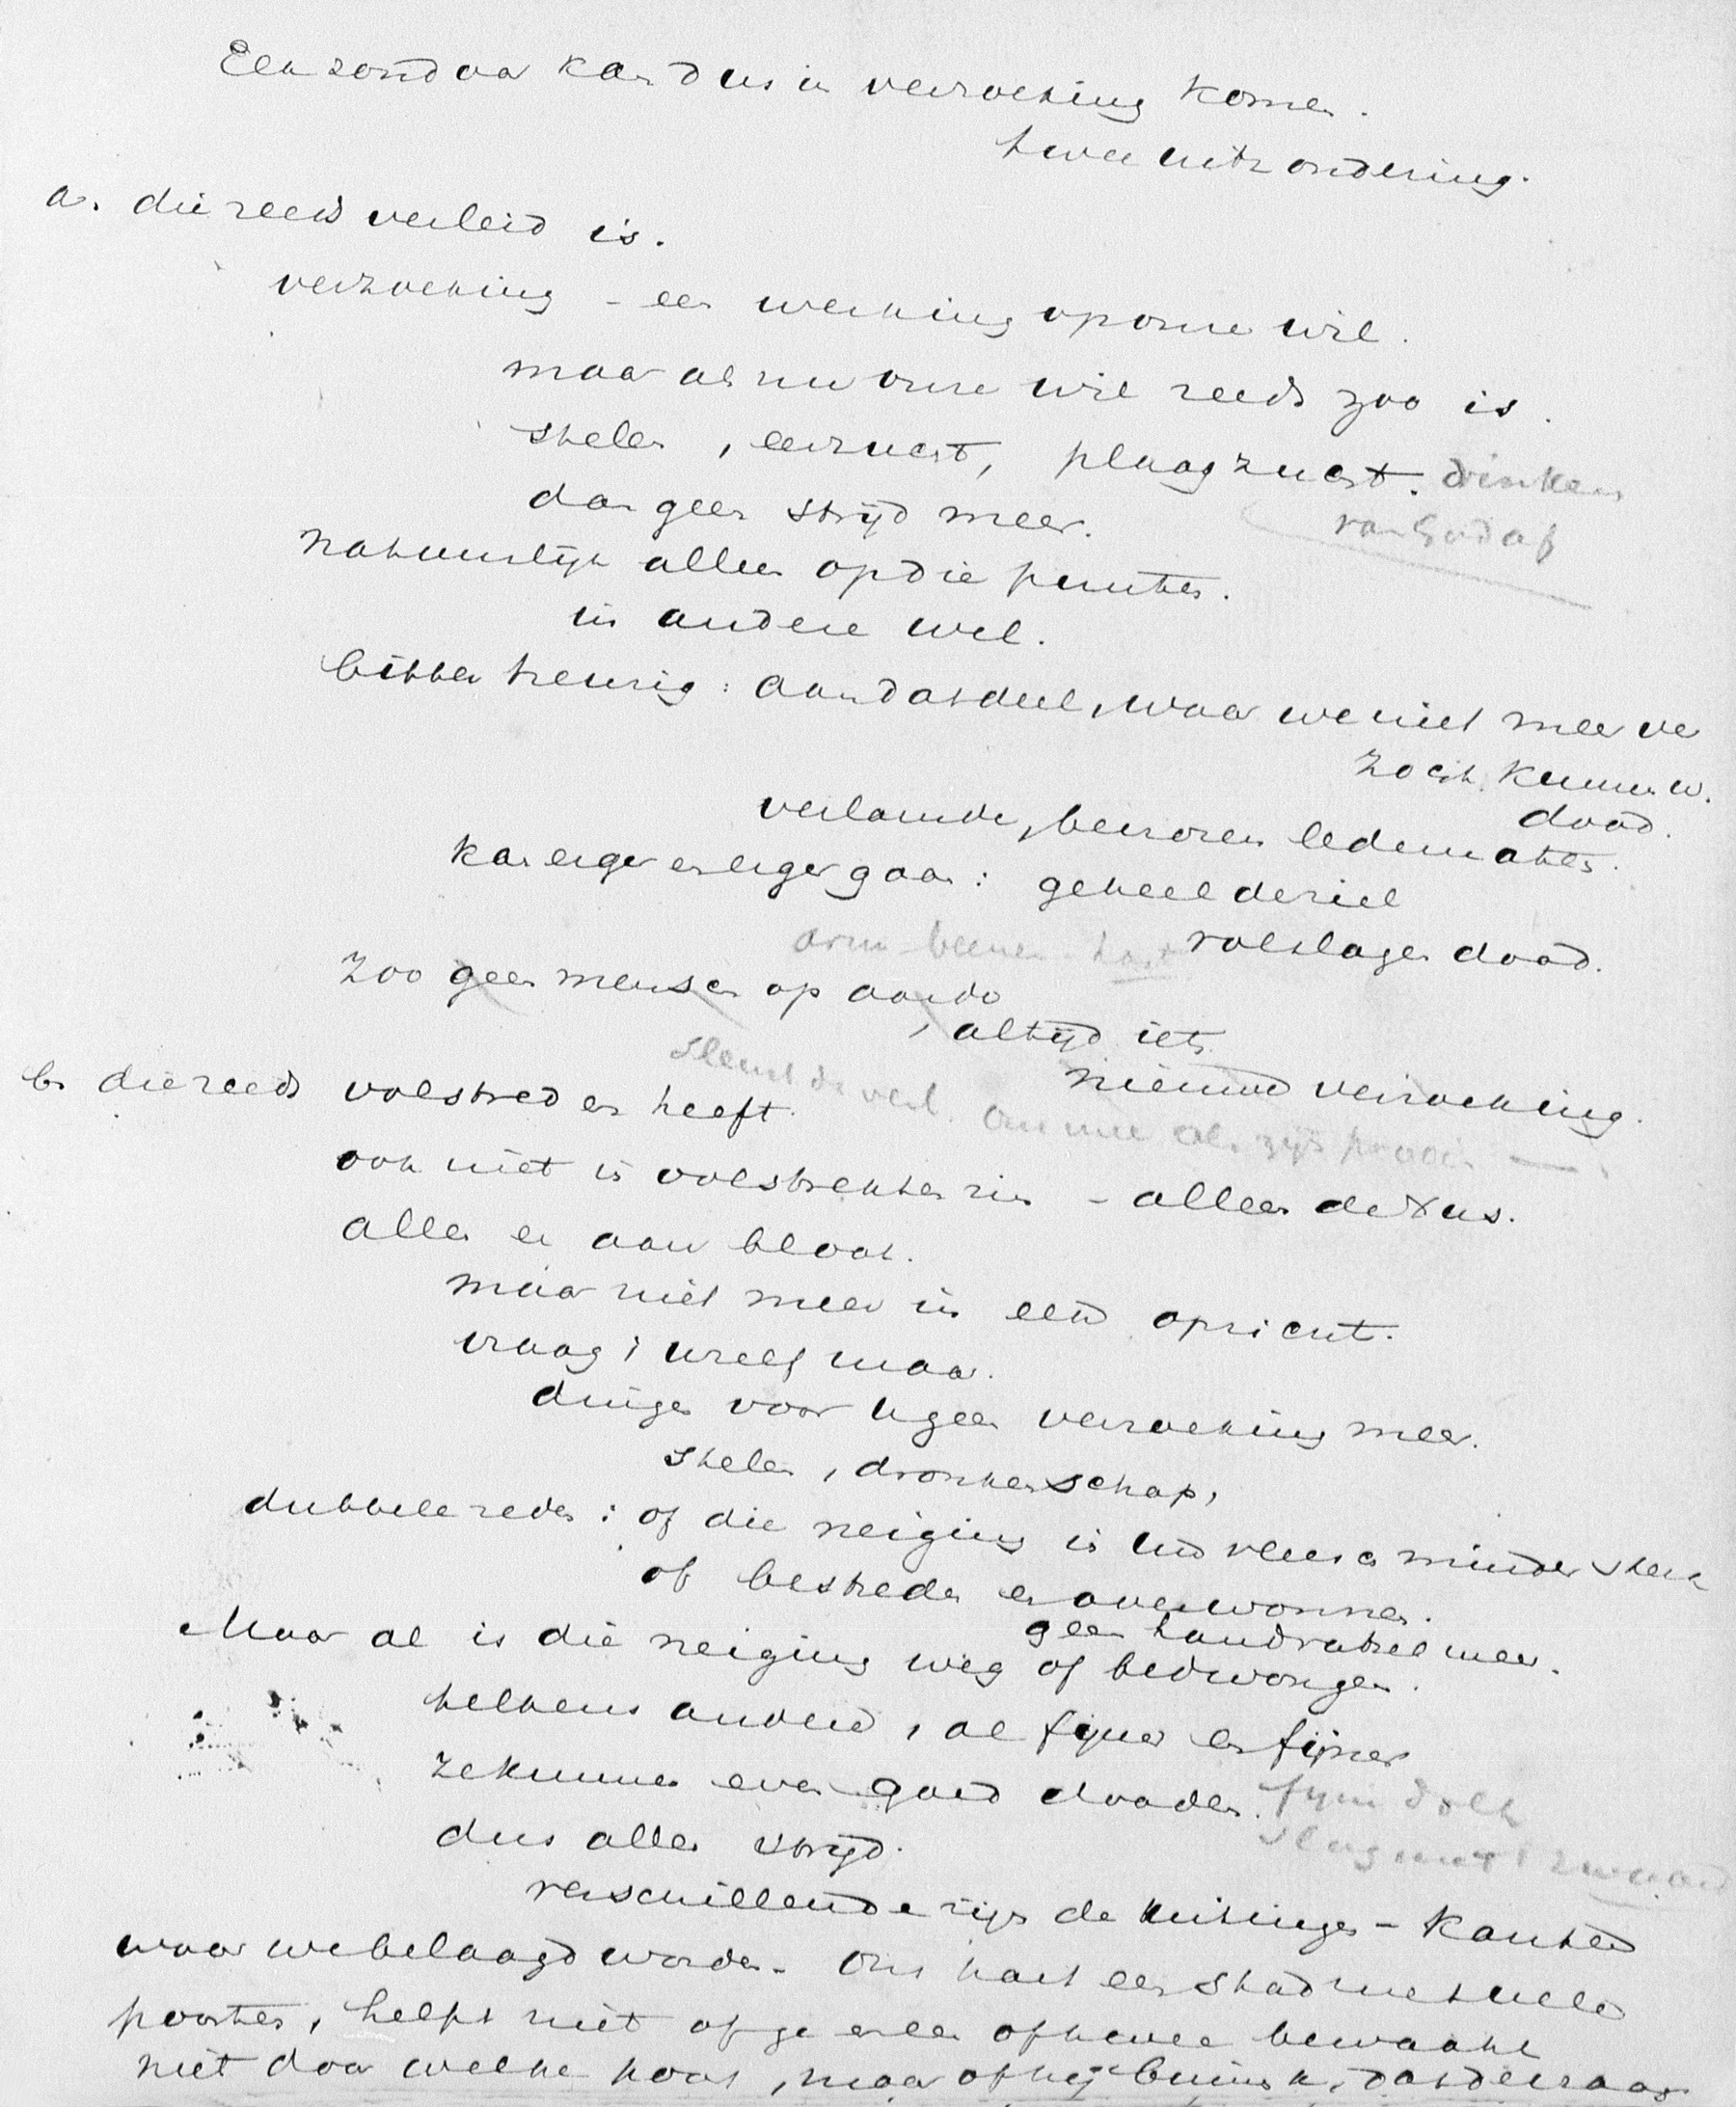 Een zondaar kan dus in verzoeking komen.
twee uitzondering.
a. die reeds verleid is.
verzoeking - een werking op onze wil.
maar als nu onze wil reeds zoo is.
stelen, eerzucht, plaagzucht. drinken
van God af
dan geen strijd meer.
natuurlijk alleen op die punten.
in andere wel.
bitter treurig: aan dat deel, waar we niet meer ver
zocht kunnen w.
dood.
verlamde, bevroren ledematen.
kan erger en erger gaan: geheel de ziel
arm beenen hart
volslagen dood.
Zoo geen mensch op aarde
, altijd iets
b. die reeds volstreden heeft.
nieuwe verzoeking.
ook niet in volstrekten zin - alleen de Xus.
allen er aan bloot.
maar niet meer in elk opzicht.
vraag 't uzelf maar.
dingen voor u geen verzoeking meer.
stelen, dronkenschap,
dubbele reden: of die neiging in uw vleesch minder sterk
of bestreden en overwonnen.
geen handvatsel meer.
Maar al is die neiging weg of bedwongen.
telkens andere, al fijner en fijner
ze kunnen even goed dooden. fijne dolk
slag met 't zwaard
dus allen strijd.
verschillend zijn de - kanten
waar we belaagd worden - Ons hart een stad met vele
poorten, helpt niet of ge er een of twee bewaakt
niet door welke poort, maar of hij binnen k. dat de vraag